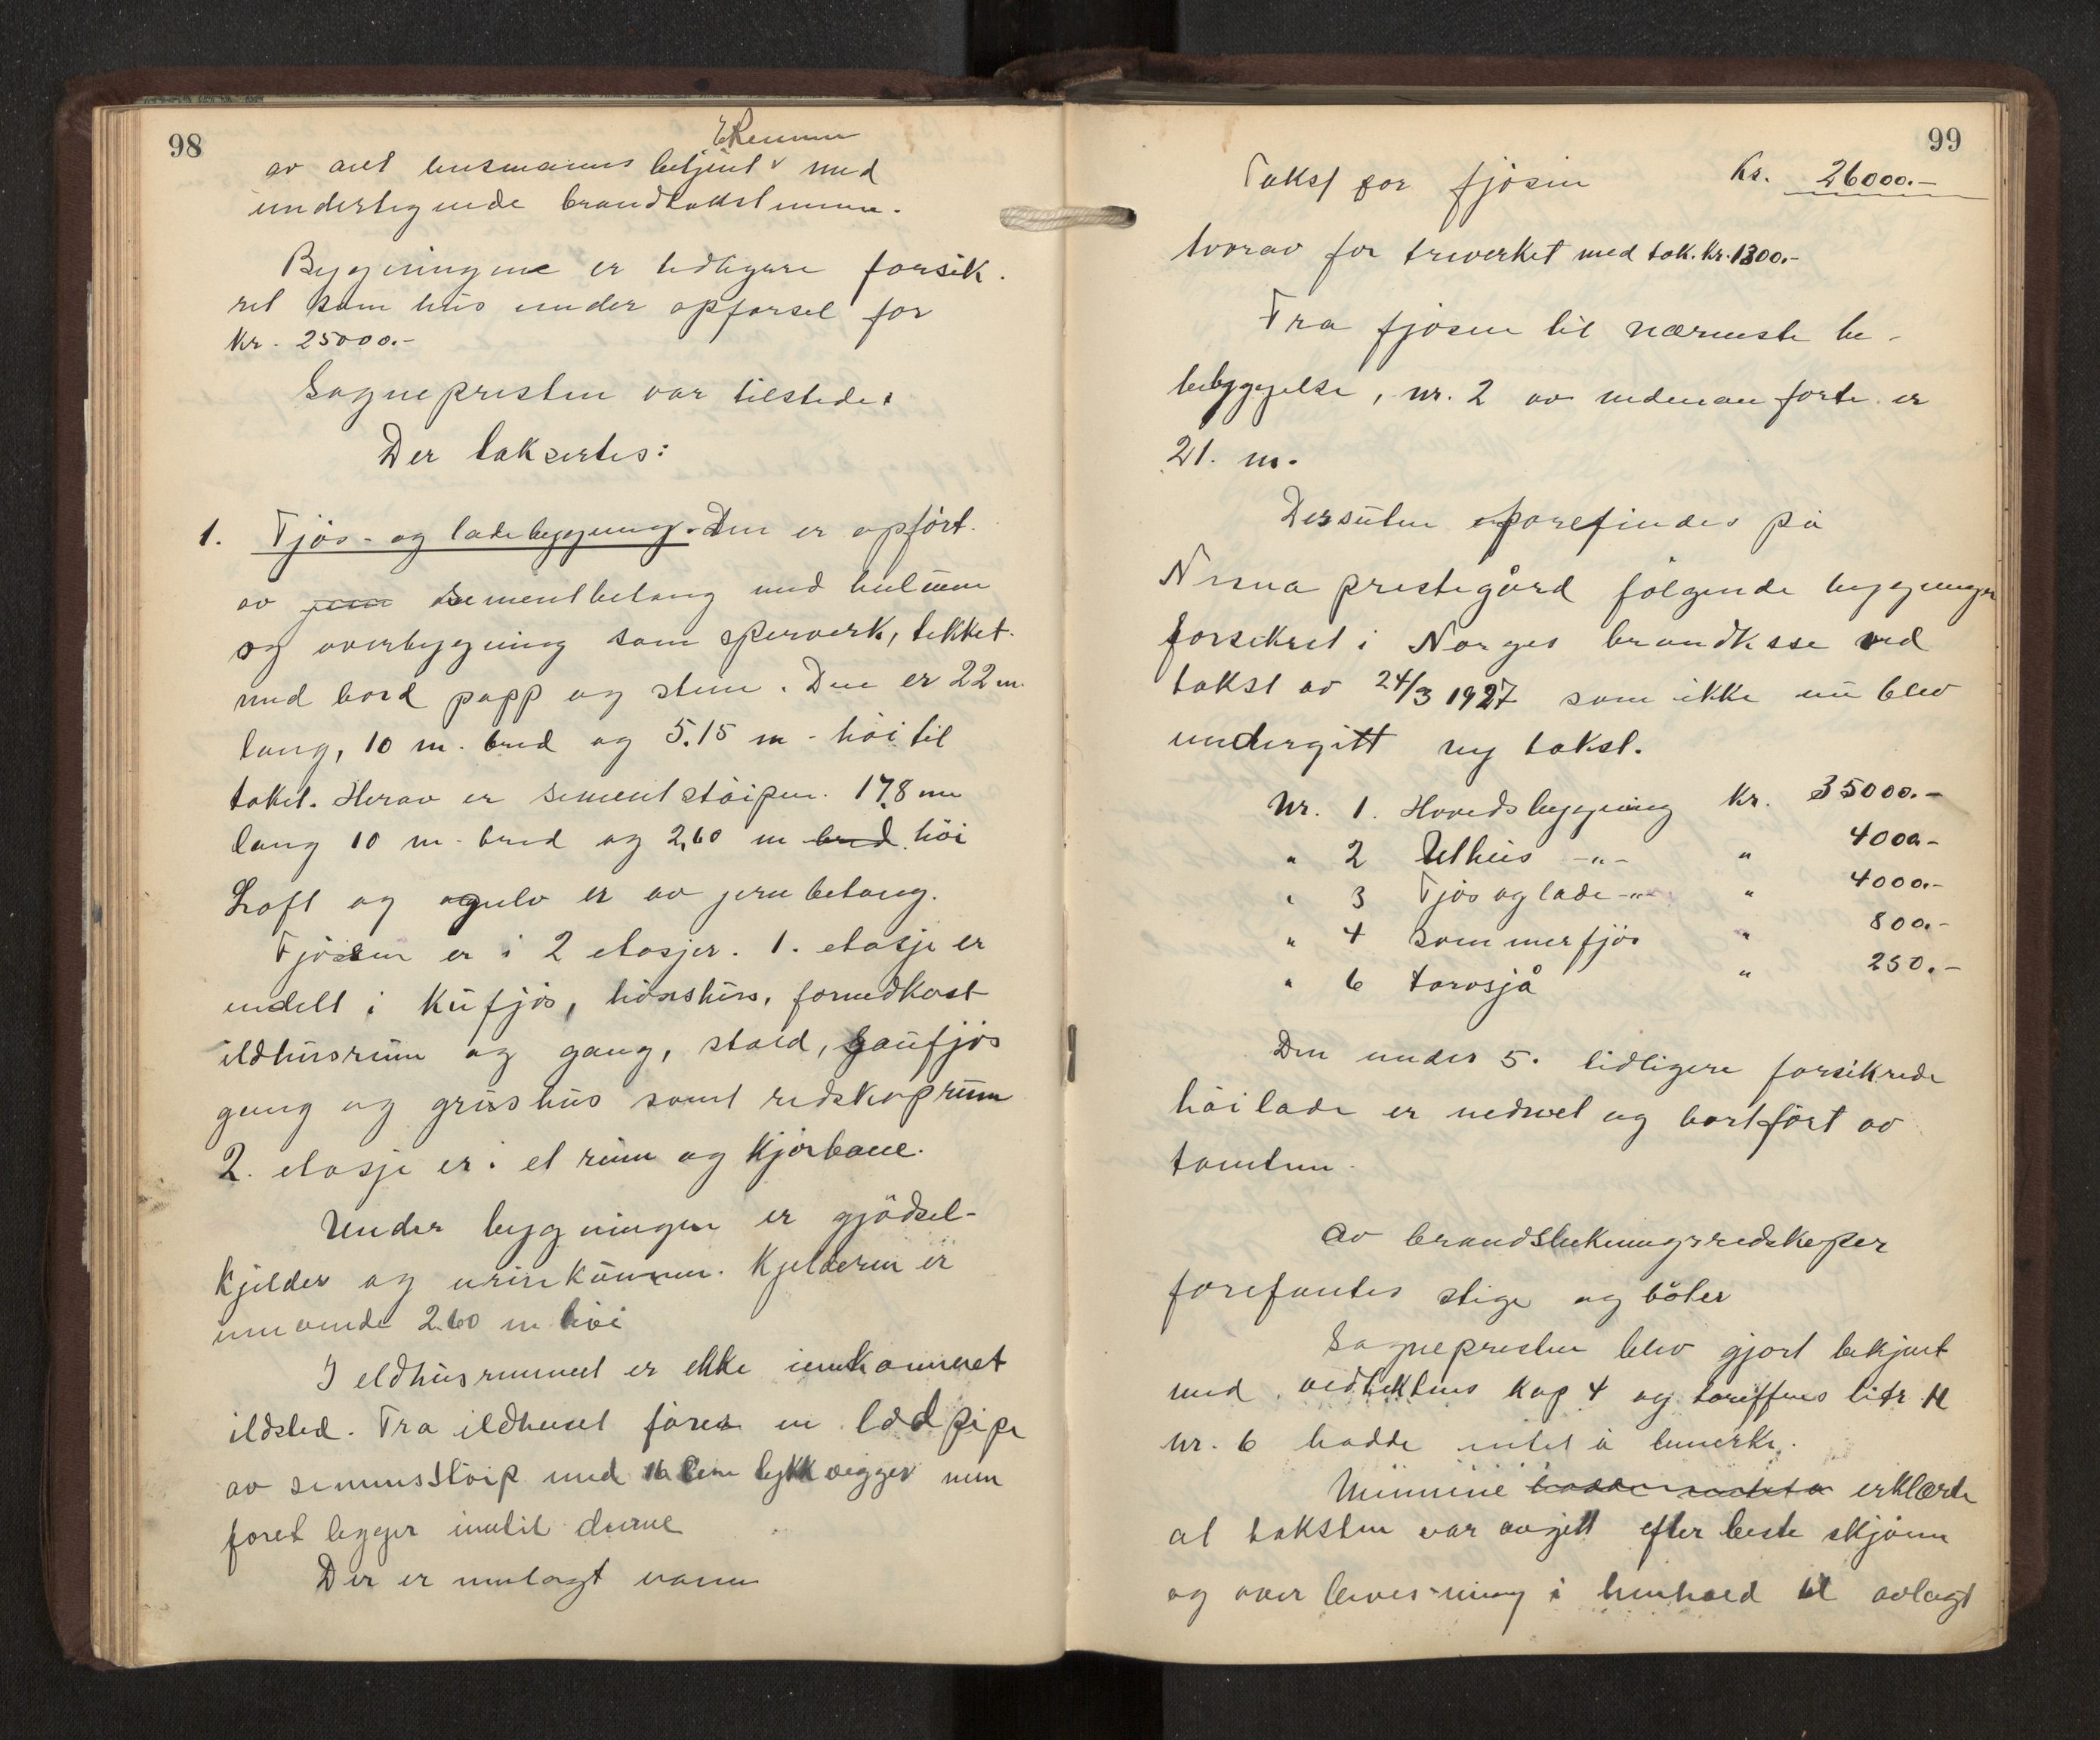 98
E Remmen
av aut lensmanns betjent v med
undertegnede brandtakstmenn.
Bygningene er tidligere forsik-
ret som hus under opførsel for
Kr. 25000.-
Sognepresten var tilstede.
Der taksertes:
1. Fjös- og ladebygning. Den er opført
av jern sementbetong med hulrum
og overbygning som sperverk, tekket
med bord papp og sten. Den er 22 m.
lang, 10 m. bred og 5.15 m - höi til
taket. Herav er sementstöipen. 17,8 m
lang 10 m. bred og 2,60 m bred höi
Loft og gulv er av jernbetong.
Fjösen er i 2 etasjer. 1. etasje er
indelt i kufjös, hönshus, fornedkast
ildhusrum og gang, stald, saufjös
gang og grishus samt redskaprum
2. etasje er i et rum og kjörbane.
Under bygningen er gjödsel-
kjelder og urinkummen. Kjelderen er
innvendi 2.60 m höi
I eldhusrummet er ikke innkommet
ildsted. Fra ildhuset föres en lodpipe
av stöip med 16 cm tykk vegger men
foret legger inntil denne
Der er innlagt vann
99
Takst for fjösen Kr. 26000.-
hvorav for treverket med tak. Kr. 1300.-
Fra fjösen til nærmeste be-
bebyggelse, nr. 2 av nedenanförte er
21. m.
Desuten forefindes på
Nesna prestegård fölgende bygninger
forsikret i Norges brandkasse ved
takst av 24/3 1927 som ikke nu blev
undergitt ny takst.
Nr. 1. Hovedsbygning Kr. 35000.-
" 2 Uthus -"- " 4000.-
" 3 Fjös og lade -"- " 4000.-
" 4 Sommerfjös " 800.-
" 6 torvsjå " 250.-
Den under 5. tidligere forsikrede
höilade er nedrevet og bortfört av
tomten.
Av brandslukningsredskaper
forefantes stige og böter
Sognepresten blev gjort bekjent
med vedtektens kap 4 og tariffens litr H
nr. 6 hadde intet å bemerke.
Mennene hadde erklærte
at taksten var avgitt efter beste skjönn
og overbevisning i henhold til avlagt